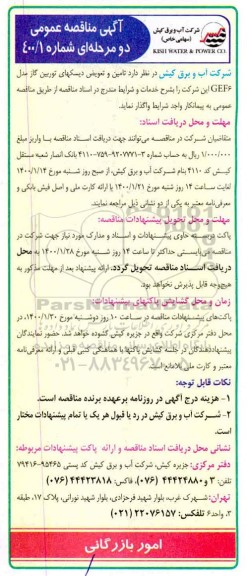 شرکت آب و برق کیش
(سهامی خاص)
KISH WATER & POWER CO.
آگهی مناقصه عمومی
دو مرحله‌ای شماره ۴۰۰/۱
شرکت آب و برق کیش در نظر دارد تامین و تعویض دیسکهای توربین گاز مدل
GEF6 این شرکت را بشرح خدمات و شرایط مندرج در اسناد مناقصه از طریق مناقصه
عمومی به پیمانکار واجد شرایط واگذار نماید.
مهلت و محل دریافت اسناد:
متقاضیان شرکت در مناقصه می‌توانند جهت دریافت اسناد مناقصه با واریز مبلغ
۱/۰۰۰/۰۰۰ ریال به حساب شماره بانک انصار شعبه مستقل
کیش کد ۴۱۱۰ بنام شرکت آب و برق کیش، از صبح روز شنبه مورخ ۱۴۰۰/۱/۱۴
لغایت ساعت ۱۴ روز شنبه مورخ ۱۴۰۰/۱/۲۱ با ارائه کارت ملی و اصل فیش بانکی و
معرفی‌نامه معتبر به یکی از دو نشانی ذیل مراجعه نمایند.
مهلت و محل تحویل پیشنهادات مناقصه:
پاکت دربسته حاوی پیشنهادات و اسناد و مدارک مورد نیاز جهت شرکت در
مناقصه می‌بایستی حداکثر تا ساعت ۱۴ روز شنبه مورخ ۱۴۰۰/۱/۲۸ به محل
دریافت اسناد مناقصه تحویل گردد. ارائه پیشنهاد بعد از مهلت مذکور به
هیچ‌وجه قابل پذیرش نخواهد بود.
زمان و محل گشایش پاکتهای پیشنهادات:
پاکت‌های پیشنهادات مناقصه در ساعت ۱۰ روز دوشنبه مورخ ۱۴۰۰/۱/۳۰، در
محل دفتر مرکزی شرکت واقع در جزیره کیش گشوده خواهد شد. حضور نمایندگان
پیشنهاددهندگان در جلسه گشایش پاکتها با هماهنگی کتبی قبلی و ارائه معرفی‌نامه
معتبر و کارت ملی بلامانع است.
نکات قابل توجه:
۱- هزینه درج آگهی در روزنامه برعهده برنده مناقصه است.
۲- شرکت آب و برق کیش در رد یا قبول هر یک یا تمام پیشنهادات مختار است.
نشانی محل دریافت اسناد مناقصه و ارائه پاکت پیشنهادات مربوطه:
دفتر مرکزی: جزیره کیش، شرکت آب و برق کیش کد پستی ۹۵۴۶۵-۷۹۴۱۶
تلفن: ۳ و ۴۴۴۲۴۸۸۰ (۰۷۶)، فاکس: ۴۴۴۲۳۸۱۸ (۰۷۶)
تهران: شهرک غرب، بلوار شهید فرحزادی، بلوار شهید نورانی، پلاک ۱۷، طبقه
۳، واحد ۶ تلفکس: ۲۲۰۷۶۱۵۷ (۰۲۱)
امور بازرگانی